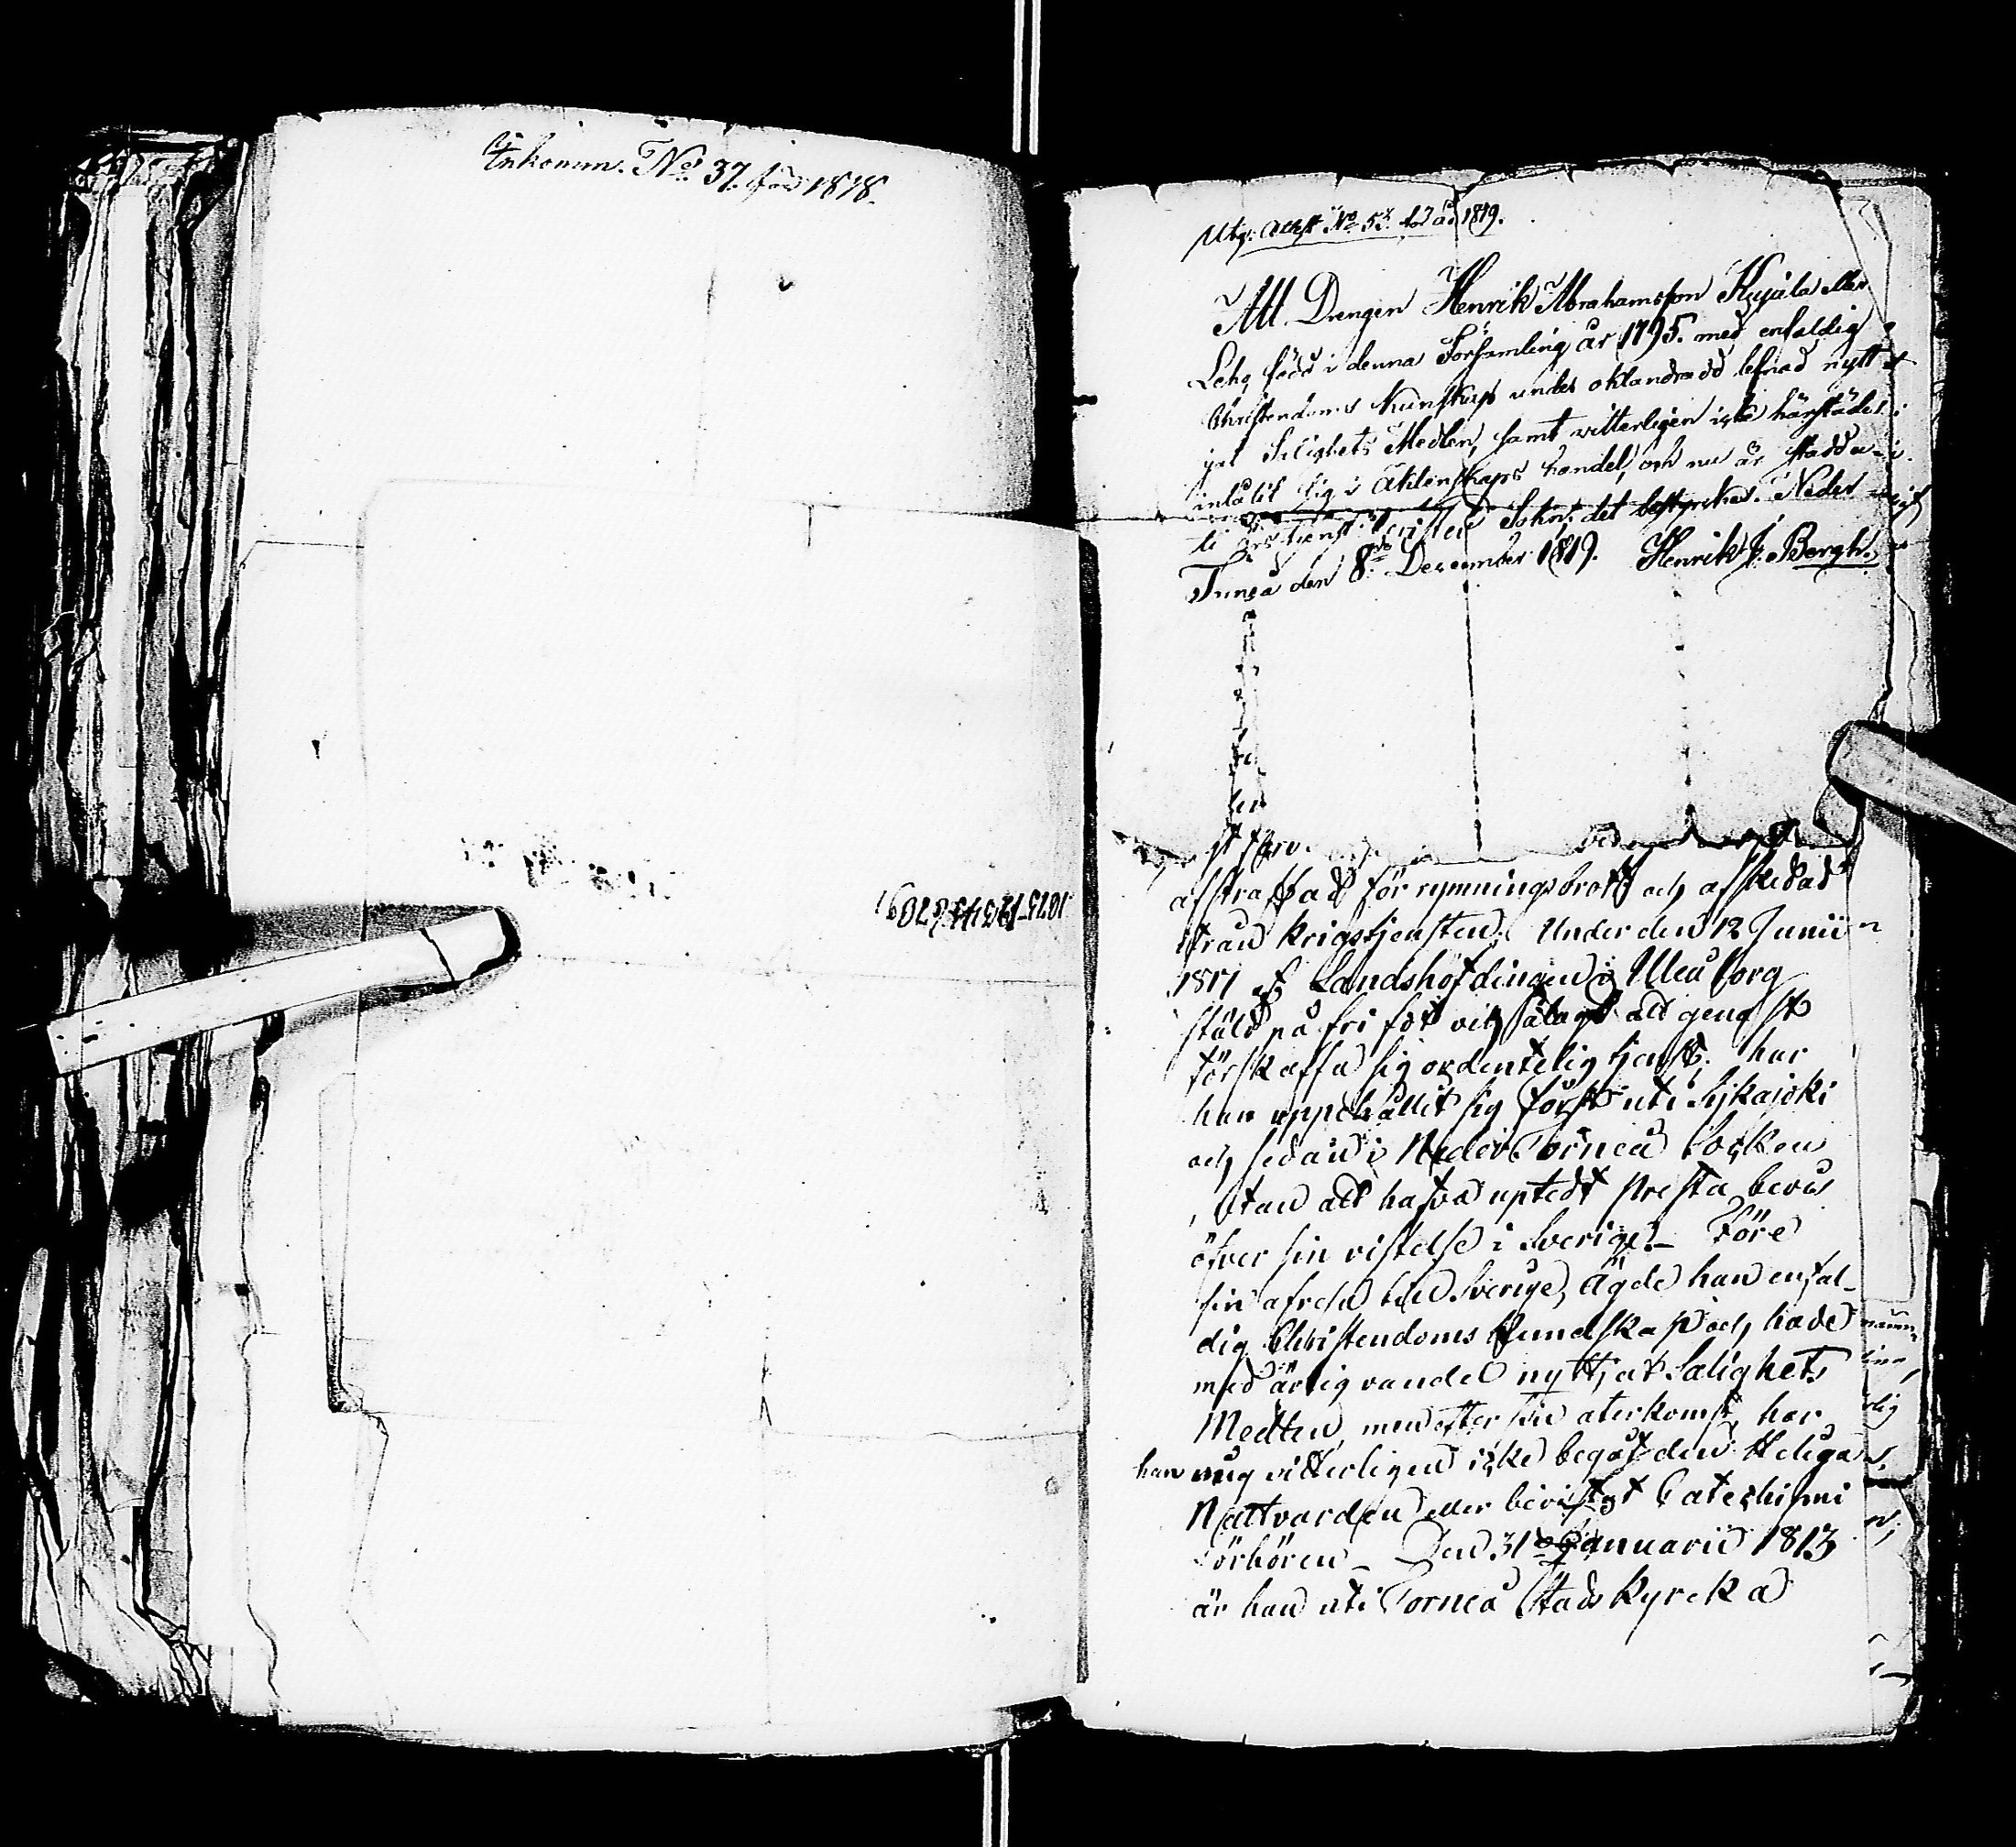 Inkomm. No 37. för 1818.
Utg: Attest No 52. för år 1819.
Att Drengen Henrik Abrahamsson Kujala eller
Lehq född i denna Församling år 1795. med enfaldig
Christendoms Kunskap under oklandradt lefnad nytt
jat Salighets Medlen, samt vitterligen icke härstädes
inlåtit sig i Äktenskaps handel, och nu är stadd
det bestyrkes. Neder
Torneå den 8de December 1819. Henrik J. Bergh.
afstraffad för rymningsbrott och afskedad
från Krigstjensten. Under den 12 Junii
1811 af Landshöfdingen i Uleåborg
stäld på fri fot och ålagd att genast
förskaffa sig ordentelig tjenst; har
han uppehållit sig först uti Sijkajoki
och sedan i Neder Torneå Socken
, utan att hafva uptedt Presta bevis
öfver sin vistelse i Sverige. – Före
sin afresa till Sverige, ägde han enfal-
dig Christendoms Kundskap och hade
med ärlig vandel nyttjat Salighets
Medlen, men efter sin aterkomst, har
han vitterligen icke begåt den Heliga
Nattvarden eller bevistat Catechismi
Förhören – Den 31 Januarii 1813
är han uti Torneå Stads Kyrcka